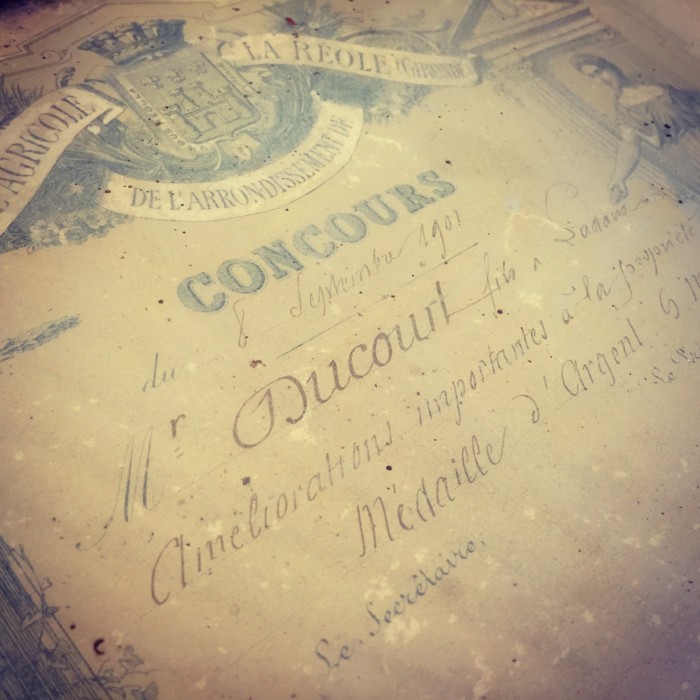 AGRICOLE
LA RÉOLE (GIRONDE)
DE L'ARRONDISSEMENT DE
CONCOURS
du 8 Septembre 1901
Mr Ducourt fils à
Améliorations importantes à la propriété
Médaille d'Argent G. M
Le Secrétaire,